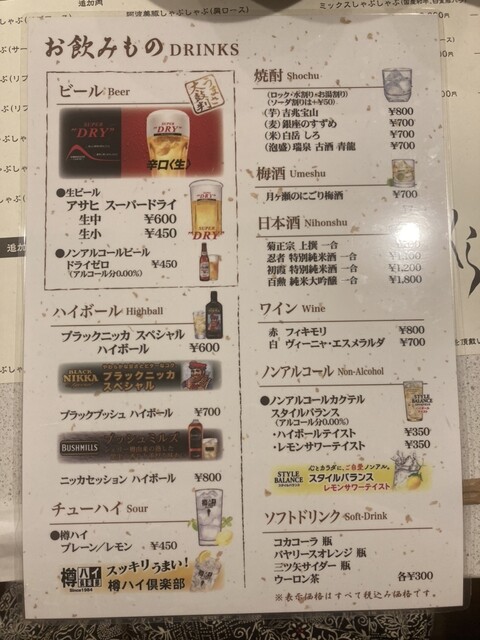 追加肉
阿波美豚しゃぶしゃぶ(肩ロース)
お飲みもの DRINKS
ビール Beer
うまさ太鼓判
SUPER "DRY"
SUPER "DRY"
辛口〈生〉
●生ビール
アサヒ スーパードライ
生中 ¥600
生小 ¥450
SUPER "DRY"
●ノンアルコールビール
ドライゼロ ¥450
(アルコール分0.00%)
ハイボール Highball
ブラックニッカ スペシャル
ハイボール ¥600
BLACK NIKKA
ブラックニッカ
スペシャル
ブラックブッシュ ハイボール ¥700
BUSHMILLS
ブッシュミルズ
ニッカセッション ハイボール ¥800
チューハイ Sour
●樽ハイ
プレーン/レモン ¥450
樽ハイ倶楽部
Since1984
スッキリうまい!
樽ハイ倶楽部
焼酎 Shochu
(ロック・水割り・お湯割り)
(ソーダ割りは+¥50)
(芋) 吉兆宝山 ¥800
(麦) 銀座のすずめ ¥700
(米) 白岳 しろ ¥700
(泡盛) 瑞泉 古酒 青龍 ¥700
梅酒 Umeshu
月ヶ瀬のにごり梅酒 ¥700
日本酒 Nihonshu
菊正宗 上撰 一合
忍者 特別純米酒 一合
初霞 特別純米酒 一合 ¥1,200
百黙 純米大吟醸 一合 ¥1,800
ワイン Wine
赤 フィキモリ ¥800
白 ヴィーニャ・エスメラルダ ¥700
ノンアルコール Non-Alcohol
●ノンアルコールカクテル
スタイルバランス
(アルコール分0.00%)
・ハイボールテイスト ¥350
・レモンサワーテイスト ¥350
STYLE BALANCE
STYLE BALANCE
心とカラダに、ご自愛ノンアル。
スタイルバランス
レモンサワーテイスト
ソフトドリンク Soft-Drink
コカコーラ 瓶
バヤリースオレンジ 瓶
三ツ矢サイダー 瓶
ウーロン茶 各¥300
※表示価格はすべて税込み価格です。